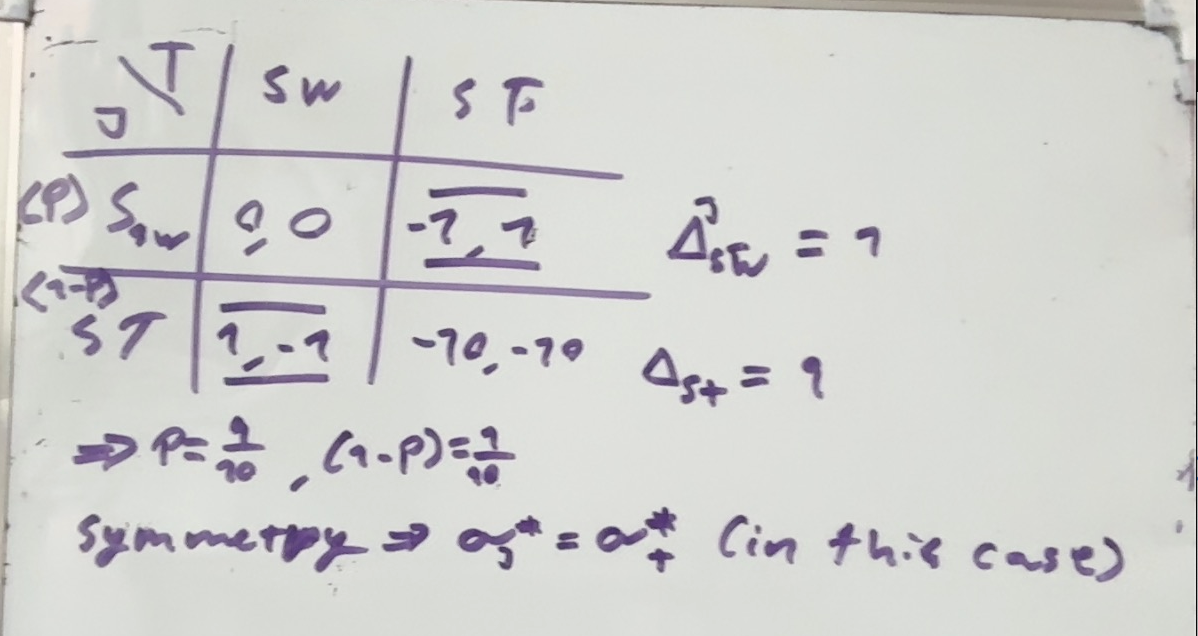 J \ T | SW | ST
(P) SW | 0, 0 | -1, 1 Δ^J_SW = 1
(1-P) ST | 1, -1 | -10, -10 Δ_St = 9
⇒ P = 9/10 , (1-P) = 1/10
Symmetry ⇒ σ_J* = σ_T* (in this case)